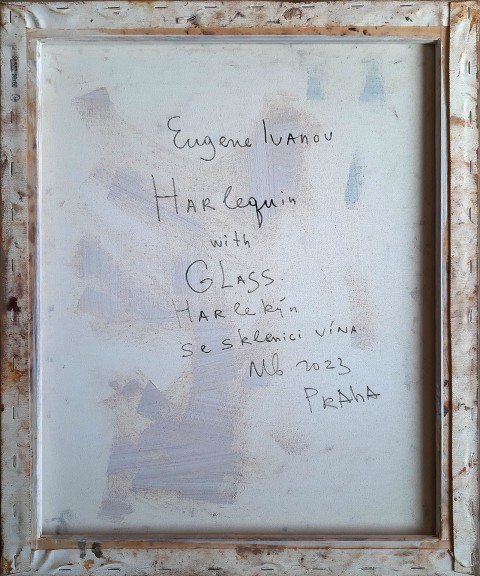 Eugene Ivanov
Harlequin
with
Glass
Harlekýn
se sklenici vína
2023
Praha